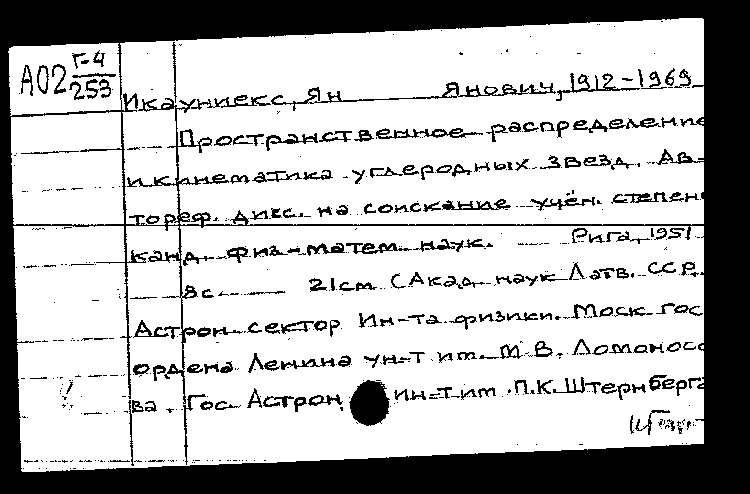 А02 Г-4
253
Икауниекс, Ян Янович, 1912-1969
Пространственное распределение
и кинематика углеродных звезд. Ав-
тореф. дисс. на соискание учён. степени
канд. физ-матем. наук. Рига, 1951
8с 21см (Акад наук Латв. ССР.
Астрон. сектор Ин-та физики. Моск гос
ордена Ленина ун-т им. М В. Ломоносо
ва. Гос. Астрон. ин-т им. П.К. Штернберга